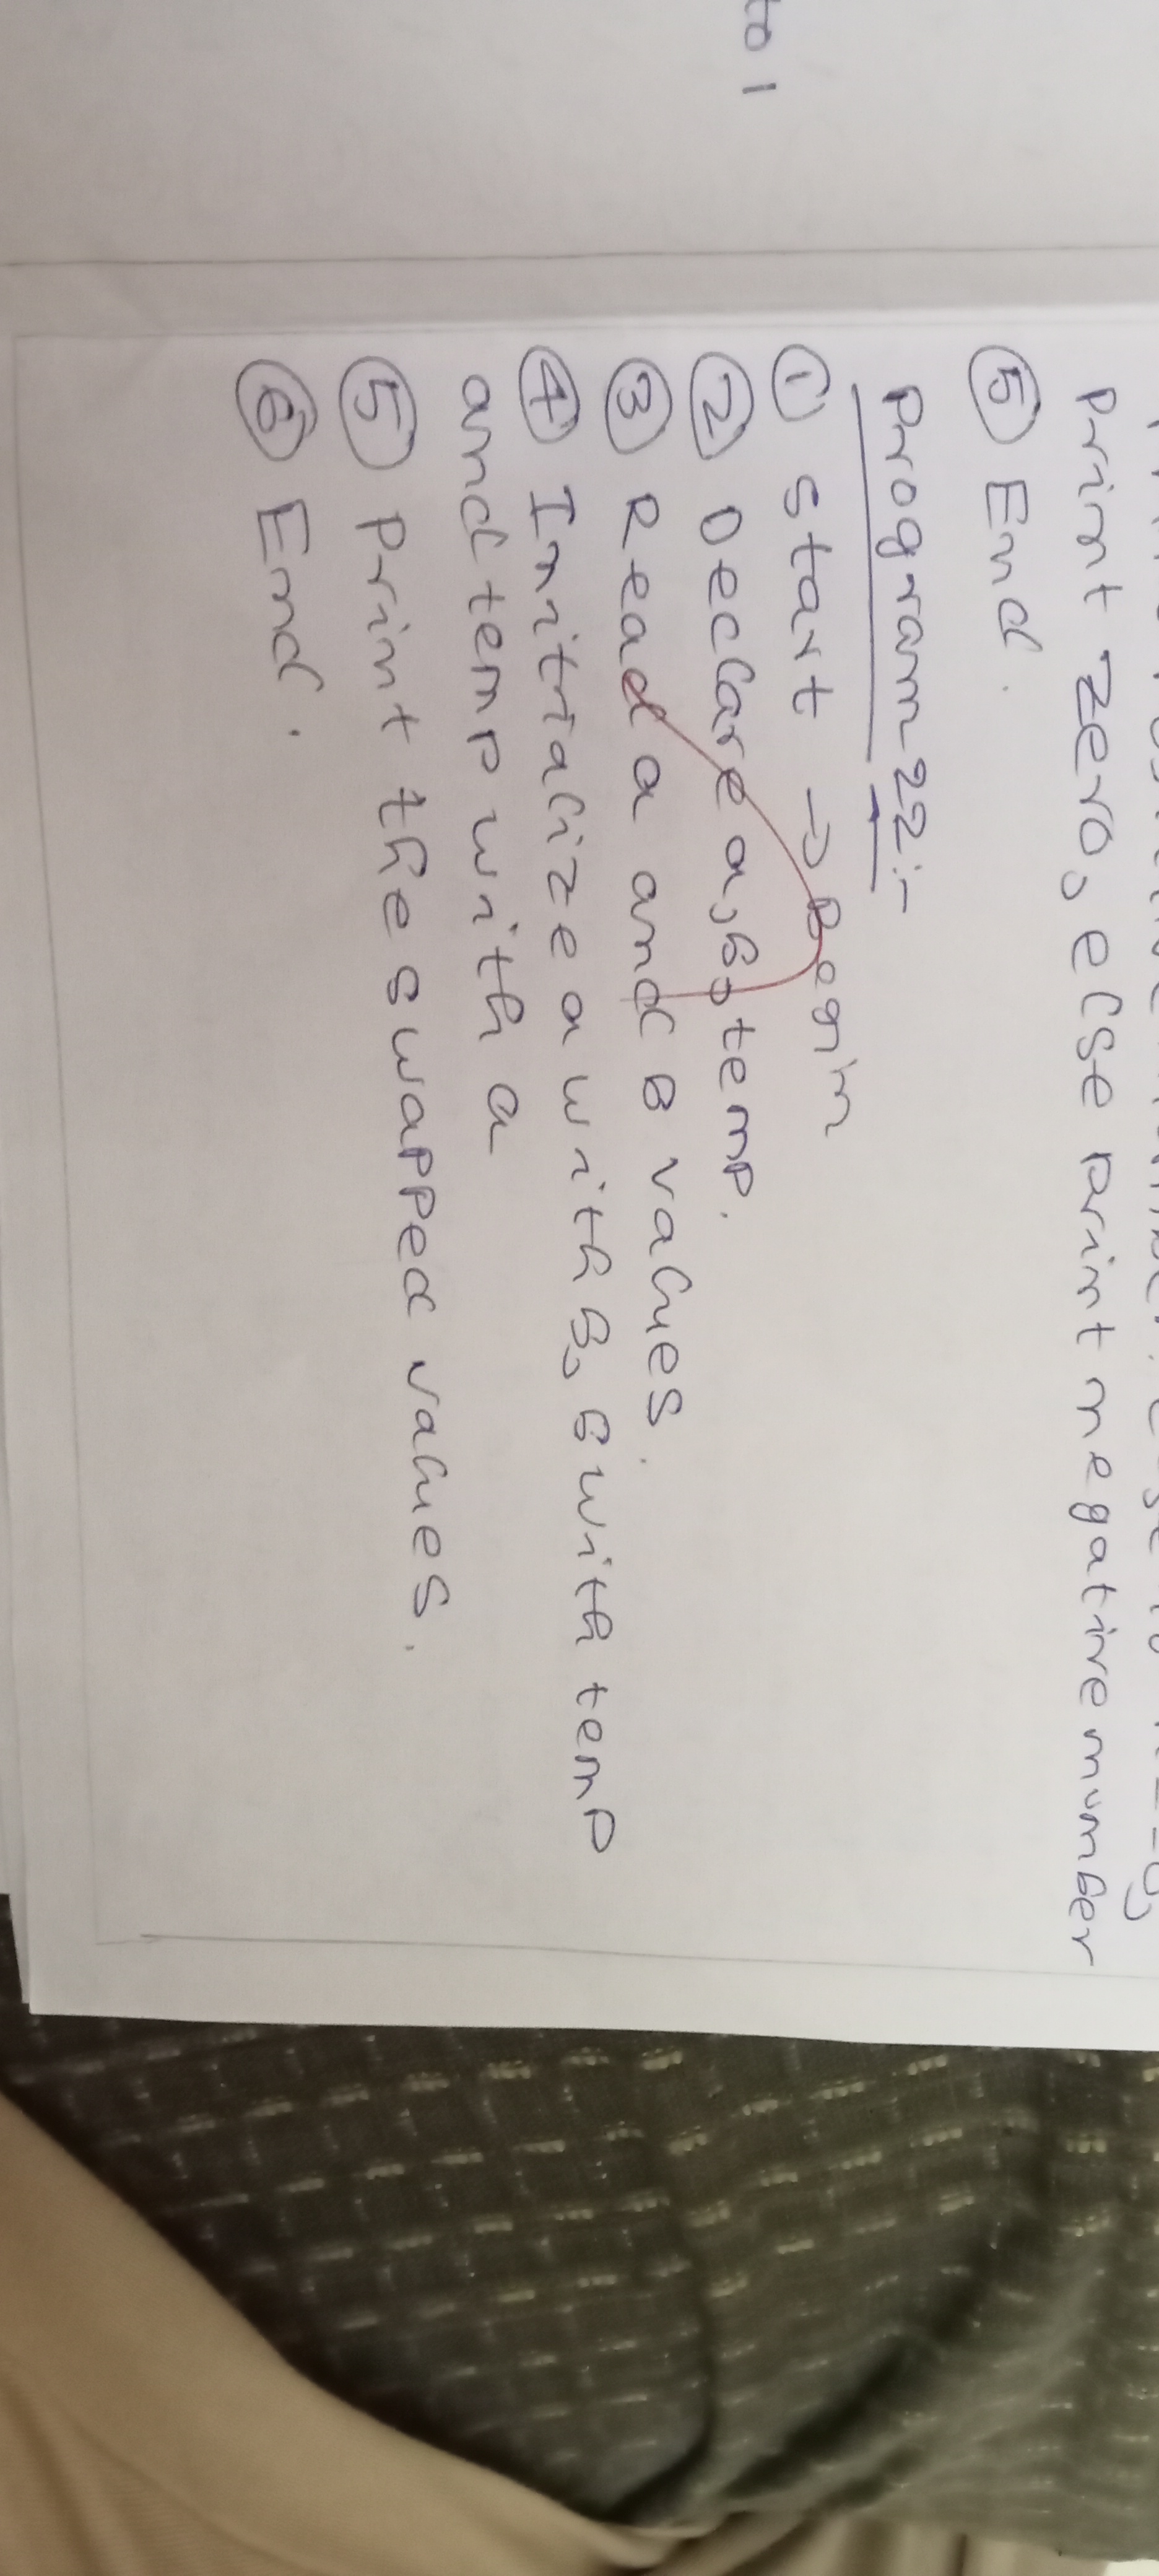 to 1
print zero, else print negative number
⑤ End.
Program-22:-
① start → Begin
② Declare a,b,temp.
③ Read a and B values.
④ Initialize a with b, b with temp
and temp with a
⑤ print the swapped values.
⑥ End.